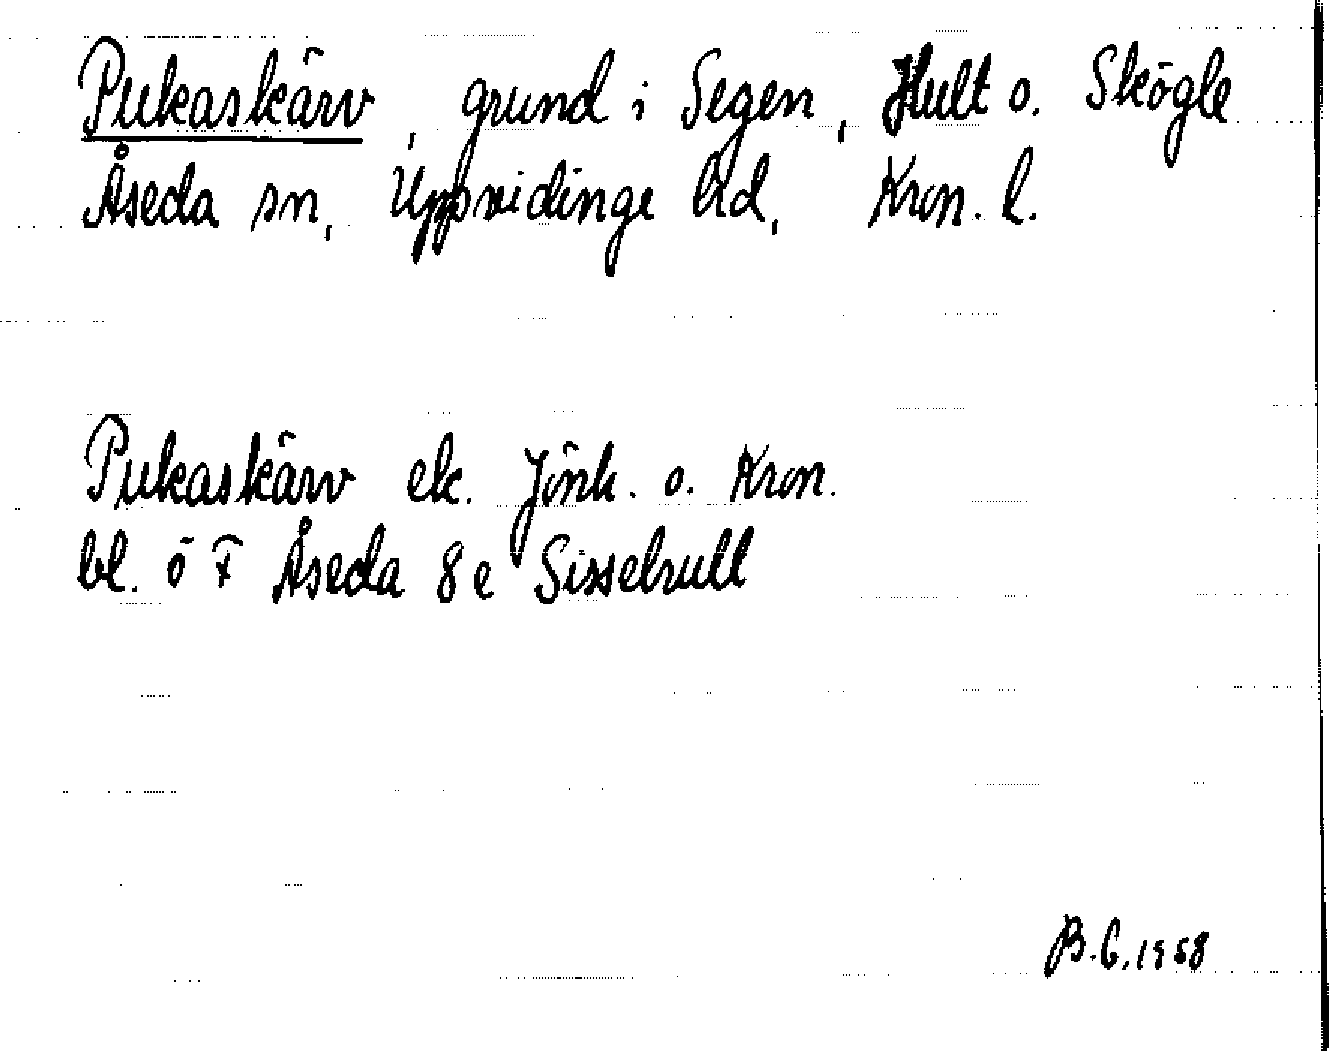 Pukaskärv, grund i Segen, Hult o. Skögle
Åseda sn, Uppvidinge hd, Kron. l.
Pukaskärv ek. Jönk. o. Kron.
bl. ö F Åseda 8e Sisselhult
B.G. 1958